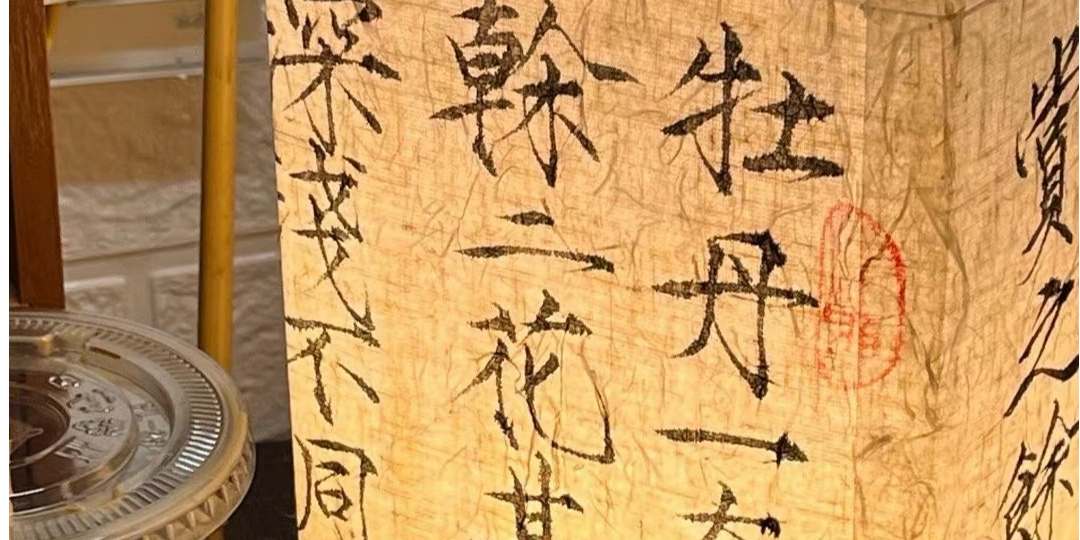 賞之餘
牡丹一
幹二花其
深淺不同